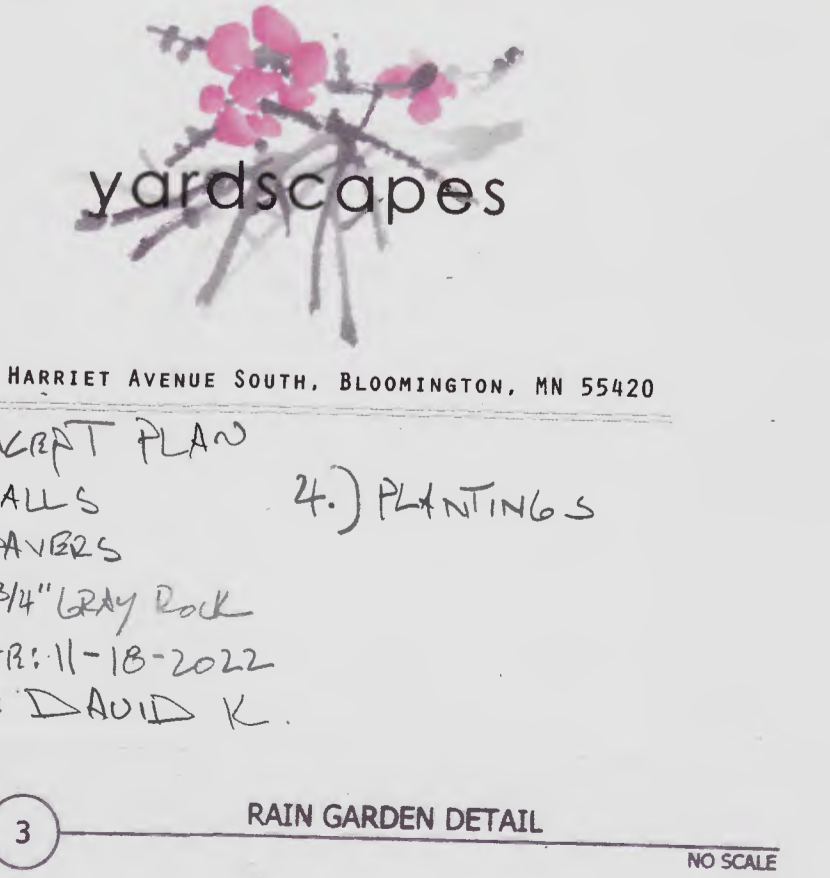 yardscapes
HARRIET AVENUE SOUTH, BLOOMINGTON, MN 55420
PLAN
ALLS
4.) PLANTINGS
AVERS
3/4" GRAY ROCK
R: 11-18-2022
DAVID K.
3
RAIN GARDEN DETAIL
NO SCALE